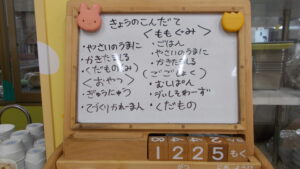 きょうのこんだて
<ももぐみ>
・やさいのうまに
・かきたまじる
<くだものぐみ>
<おやつ>
・ぎゅうにゅう
・てづくりかれーまん
・ごはん
・やさいのうまに
・かきたまじる
<ごごしょく>
・むしぱん
・くだもの
1225もく